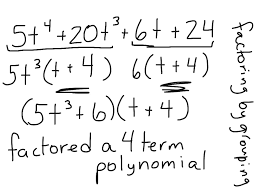 5t⁴+20t³+6t+24
5t³(t+4) 6(t+4)
(5t³+6)(t+4)
factored a 4 term
polynomial
factoring by grouping